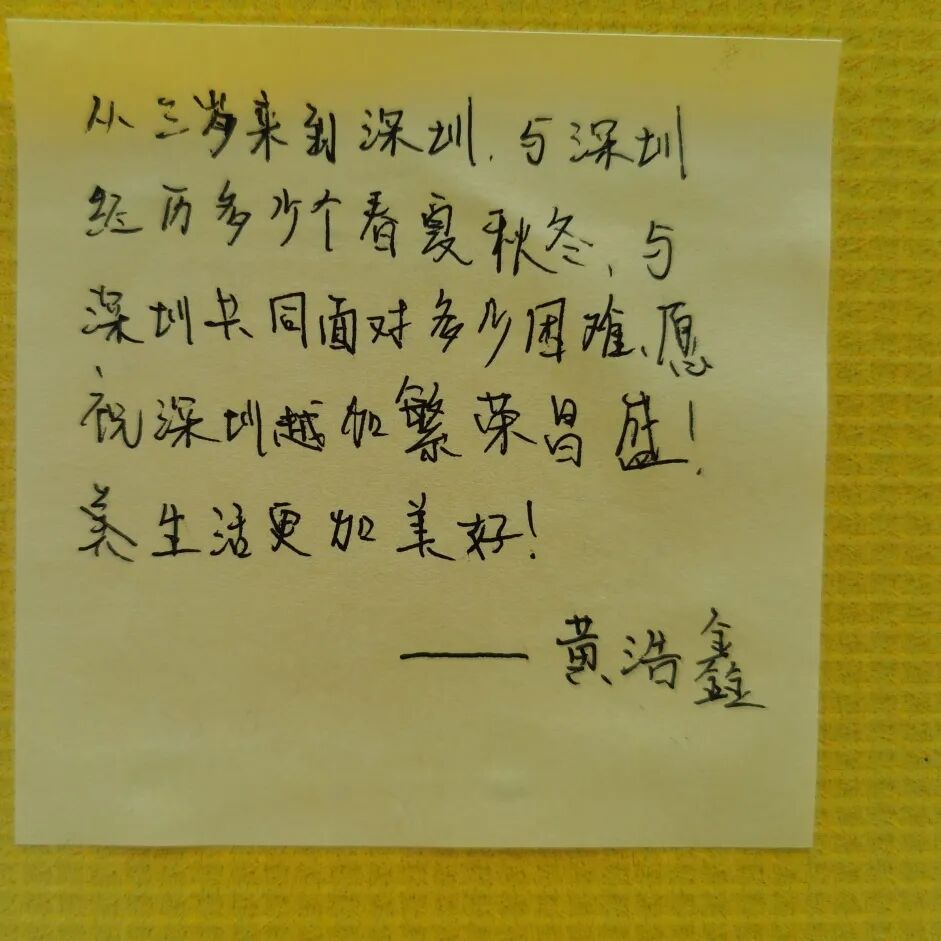 从三岁来到深圳，与深圳
经历多少个春夏秋冬，与
深圳共同面对多少困难、愿
祝深圳越加繁荣昌盛！
美生活更加美好！
——黄浩鑫